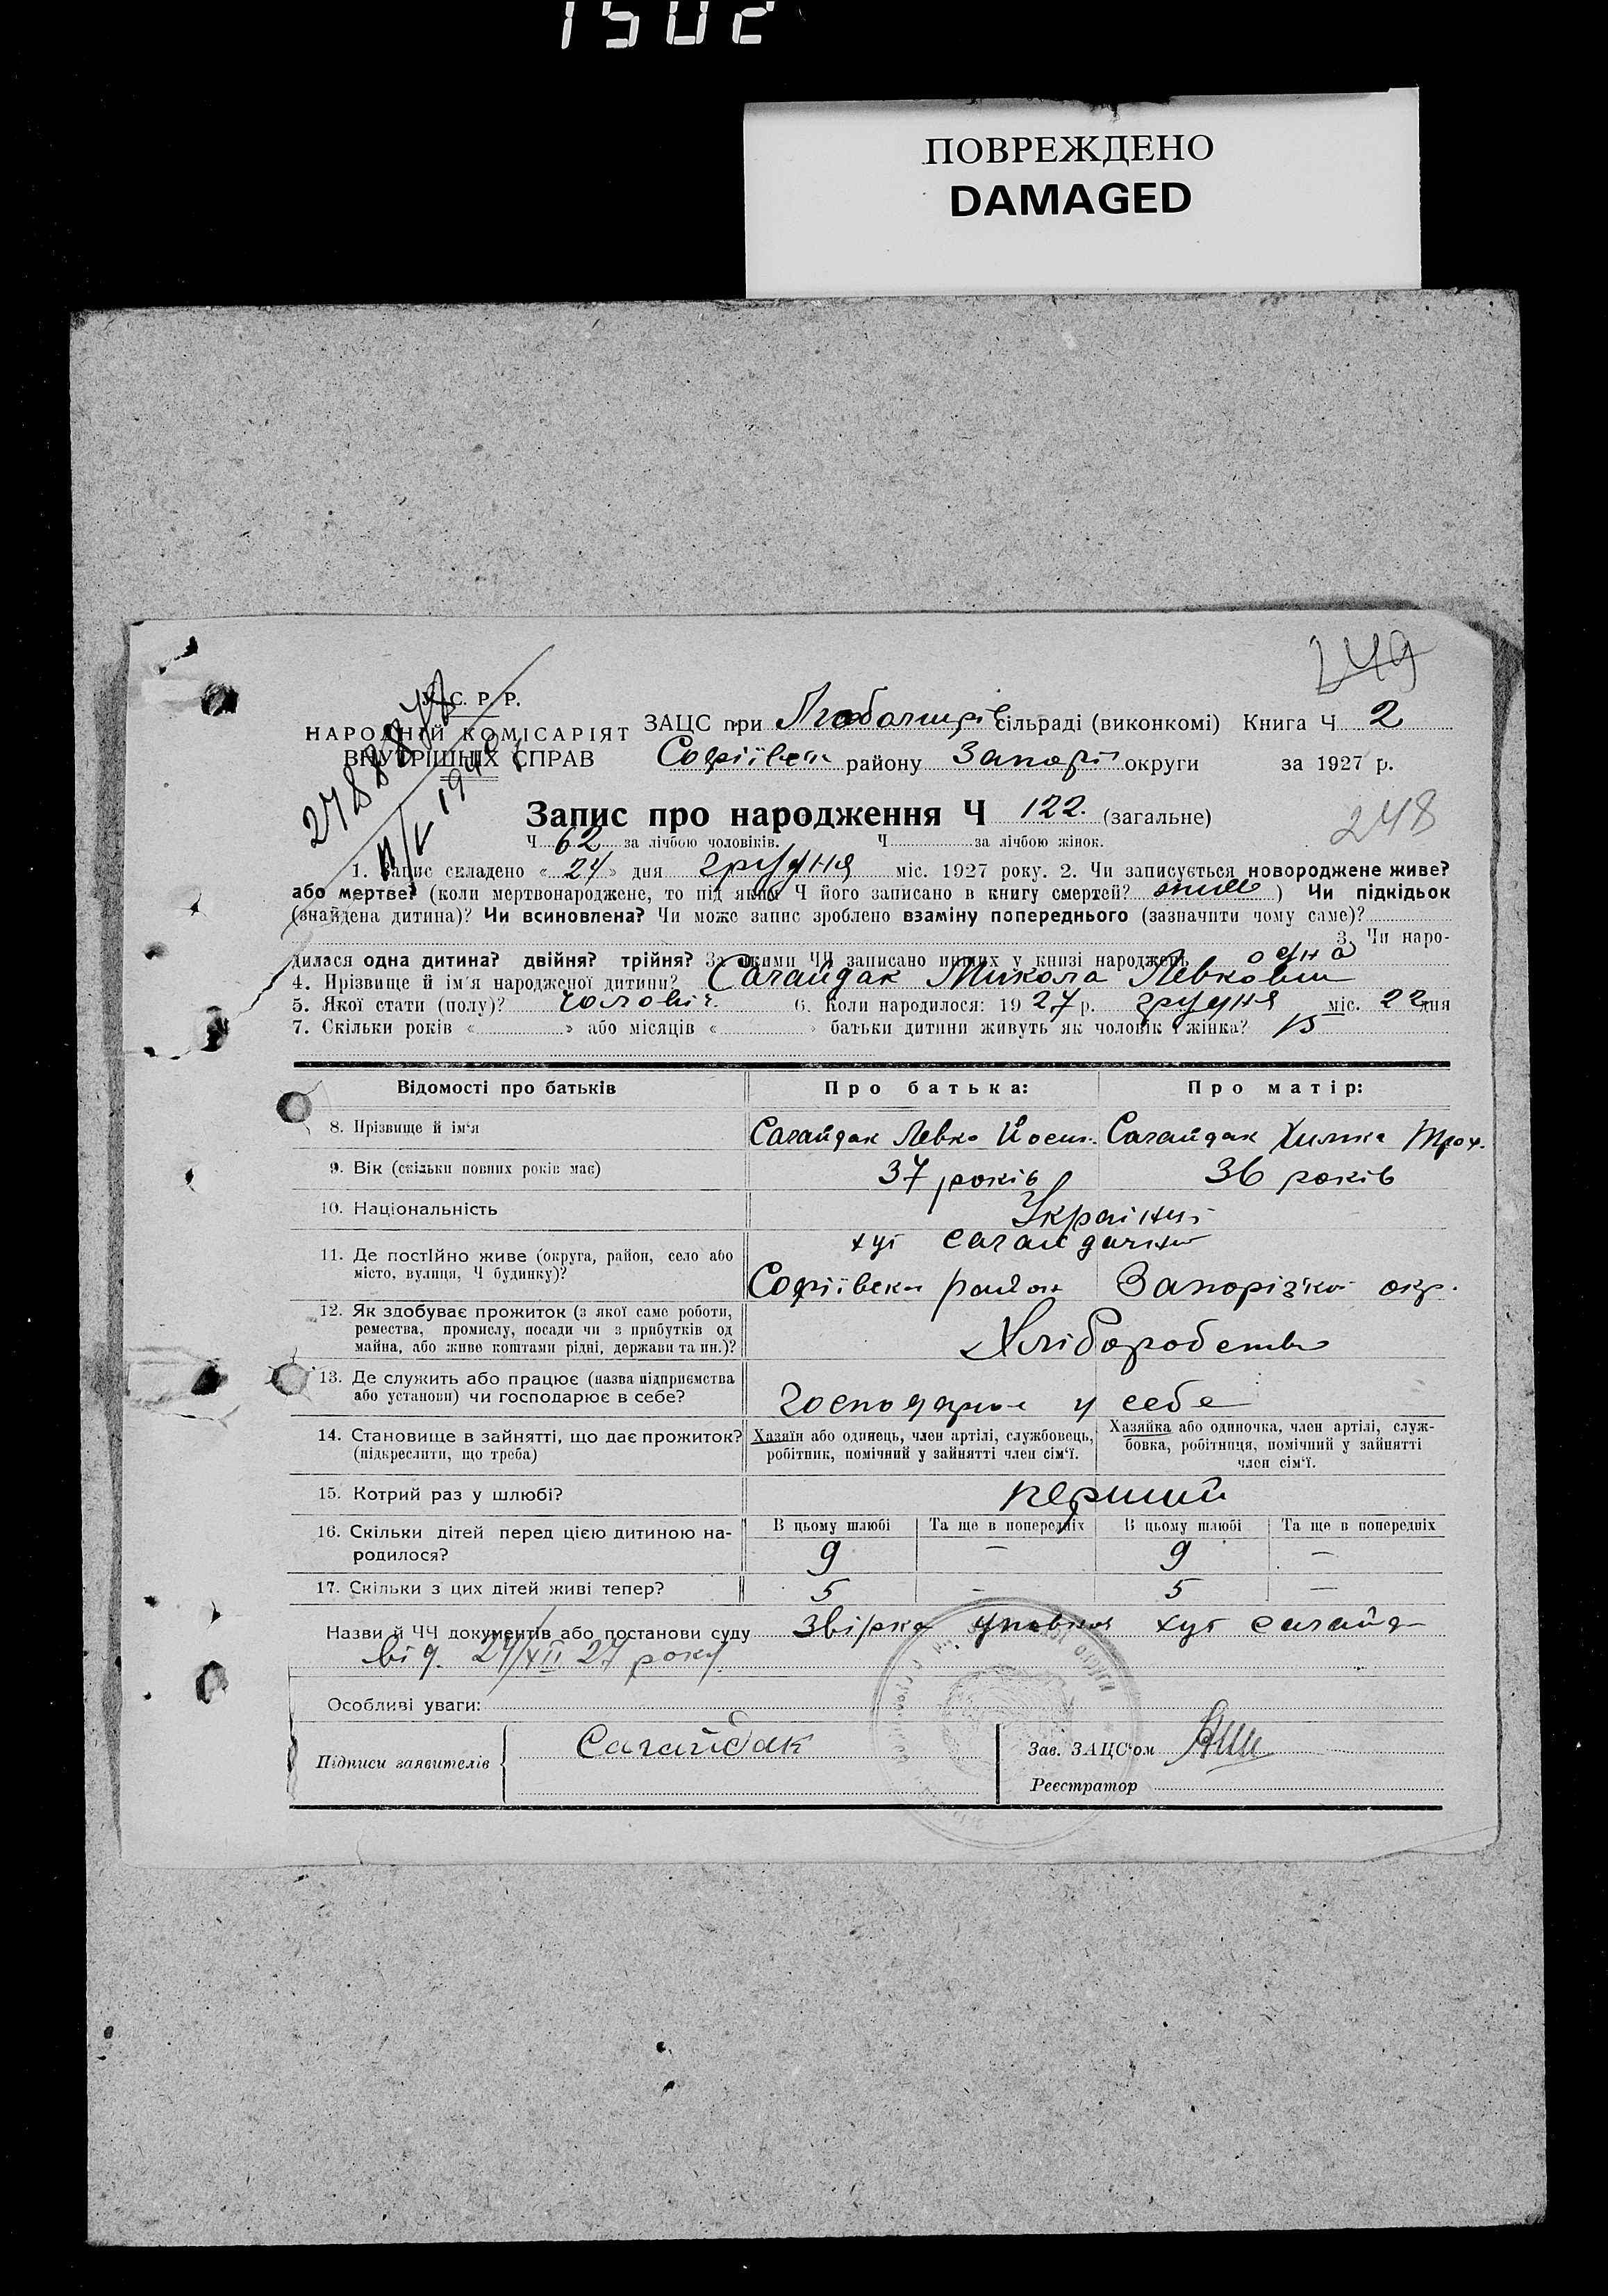 1502
ПОВРЕЖДЕНО
DAMAGED
249
У. С. Р. Р.
НАРОДНІЙ КОМІСАРІЯТ
ВНУТРІШНІХ СПРАВ
ЗАЦС при сільраді (виконкомі) Книга Ч 2
Софіївськ району Запоріз округи за 1927 р.
Запис про народження Ч 122. (загальне)
248
Ч 62 за лічбою чоловіків. Ч за лічбою жінок.
1. Запис складено « 24 » дня грудня міс. 1927 року. 2. Чи записується новороджене живе?
або мертве? (коли мертвонароджене, то під яким Ч його записано в книгу смертей? живе ) Чи підкідьок
(знайдена дитина)? Чи всиновлена? Чи може запис зроблено взаміну попереднього (зазначити чому саме)?
3. Чи наро-
дилася одна дитина? двійня? трійня? За якими ЧЧ записано инших у книзі народжень одна
4. Прізвище й ім'я народженої дитини? Сагайдак Микола Левкович
5. Якої стати (полу)? чоловіч. 6. Коли народилося: 1927 р. грудня міс. 22 дня
7. Скільки років « » або місяців « » батьки дитини живуть як чоловік і жінка? 15
Відомості про батьків Про батька: Про матір:
8. Прізвище й ім'я Сагайдак Левко Йосип. Сагайдак Химка Трох.
9. Вік (скільки повних років має) 37 років 36 років
10. Національність Україн
11. Де постійно живе (округа, район, село або
місто, вулиця, Ч будинку)?
хут
Софіївськ район Запорізьк окр.
12. Як здобуває прожиток (з якої саме роботи,
ремества, промислу, посади чи з прибутків од
майна, або живе коштами рідні, держави та ин.)?
Хліборобство
13. Де служить або працює (назва підприємства
або установи) чи господарює в себе?
Господарює у себе
14. Становище в зайнятті, що дає прожиток?
(підкреслити, що треба)
Хазяїн або одинець, член артілі, службовець,
робітник, помічний у зайнятті член сім'ї.
Хазяйка або одиночка, член артілі, служ-
бовка, робітниця, помічний у зайнятті
член сім'ї.
15. Котрий раз у шлюбі? перший
16. Скільки дітей перед цією дитиною на-
родилося?
В цьому шлюбі Та ще в попередніх В цьому шлюбі Та ще в попередніх
9 — 9 —
17. Скільки з цих дітей живі тепер? 5 — 5 —
Назви й ЧЧ документів або постанови суду хут Сагайд
від. 24/XII 27 року
Особливі уваги:
Підписи заявителів Сагайдак
Зав. ЗАЦС'ом
Реєстратор